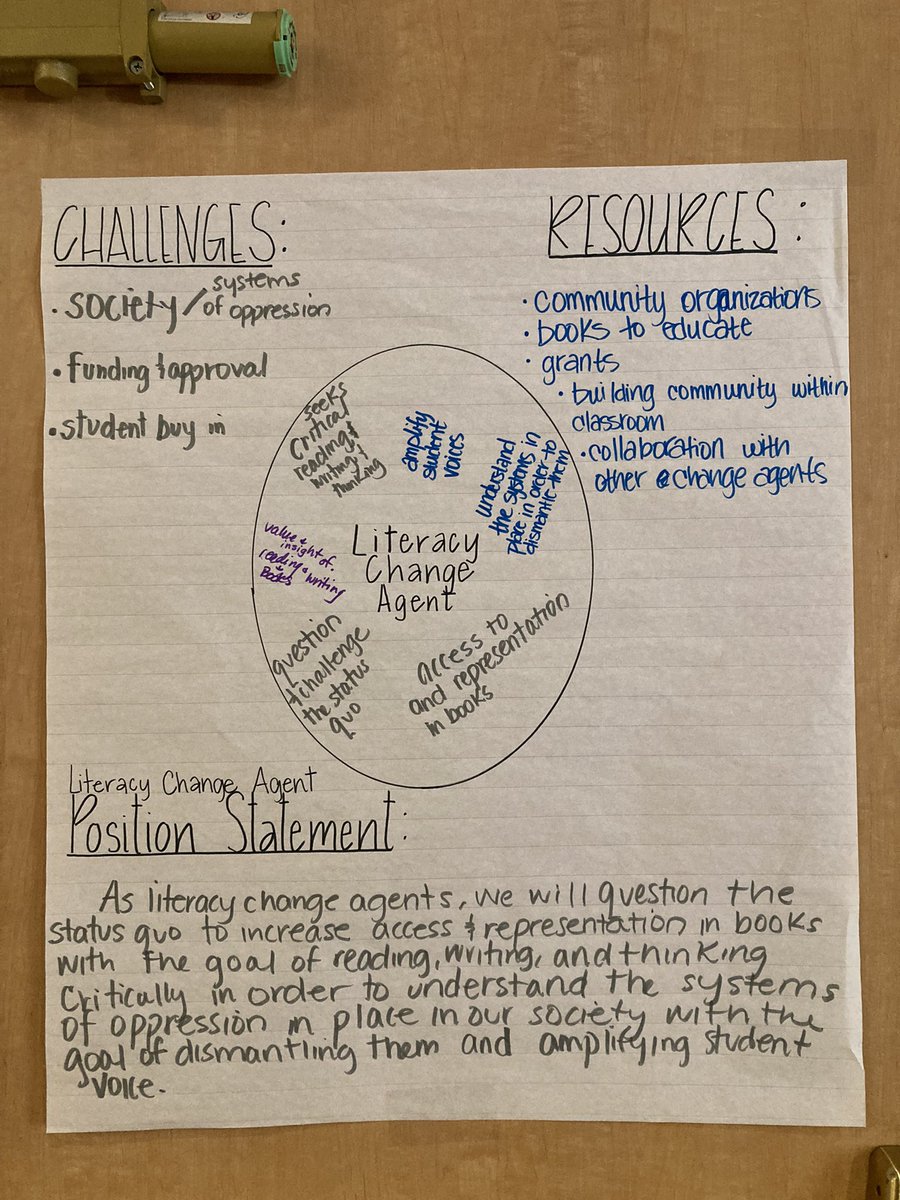 CHALLENGES:
• society/systems
of oppression
• funding & approval
• student buy in
RESOURCES:
• community organizations
• books to educate
• grants
• building community within
classroom
• collaboration with
other change agents
seeks
critical
reading &
writing &
thinking
amplify
student
voices
understand
the systems in
place in order to
dismantle them
value &
insight of
reading & writing
& Books
Literacy
Change
Agent
question
& challenge
the status
quo
access to
and representation
in books
Literacy Change Agent
Position Statement:
As literacy change agents, we will question the
status quo to increase access & representation in books
with the goal of reading, writing, and thinking
critically in order to understand the systems
of oppression in place in our society with the
goal of dismantling them and amplifying student
voice.